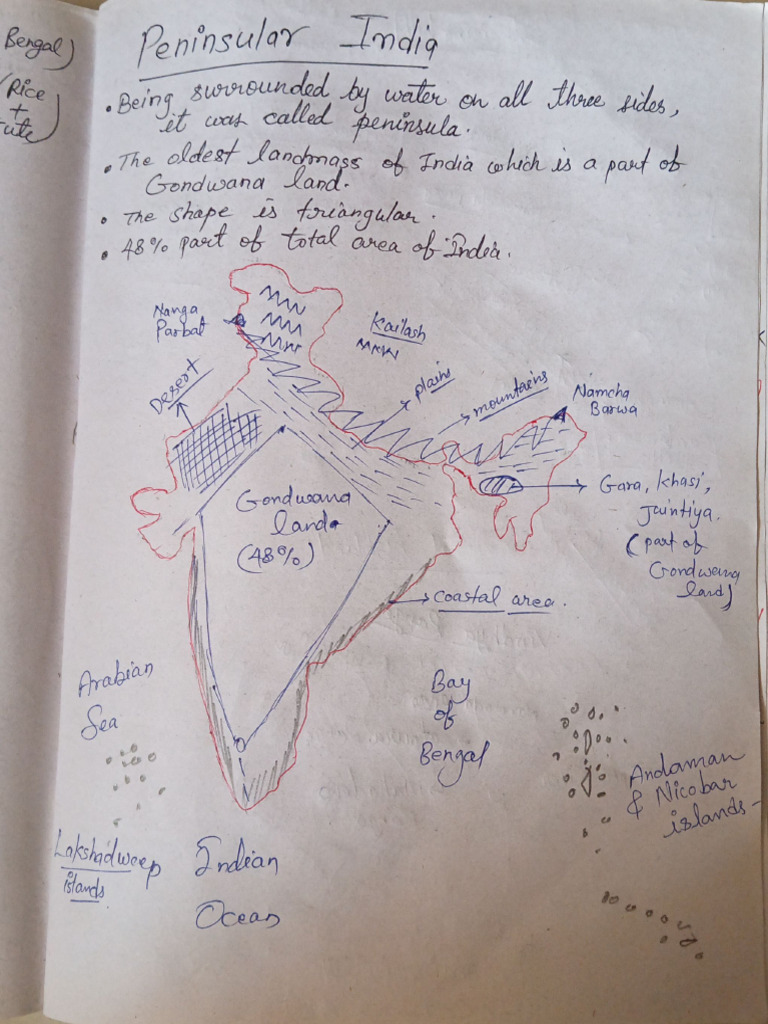 Bengal)
(Rice
+
Peninsular India
• Being surrounded by water on all three sides,
it was called peninsula.
• The oldest landmass of India which is a part of
Gondwana land.
• The shape is triangular.
• 48% part of total area of India.
Nanga
Parbat
Kailash
Desert
plains
mountains
Namcha
Barwa
Gondwana
land
(48%)
Gara, Khasi,
Jaintiya.
(part of
Gondwana
land)
coastal area.
Arabian
Sea
Bay
of
Bengal
Andaman
& Nicobar
islands
Lakshadweep
islands
Indian
Ocean